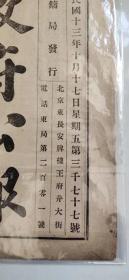 民國十三年十月十七日星期五第三千七十七號
北京東長安牌樓王府井大街
電話東局第二百零一號
印鑄局發行
政府公報